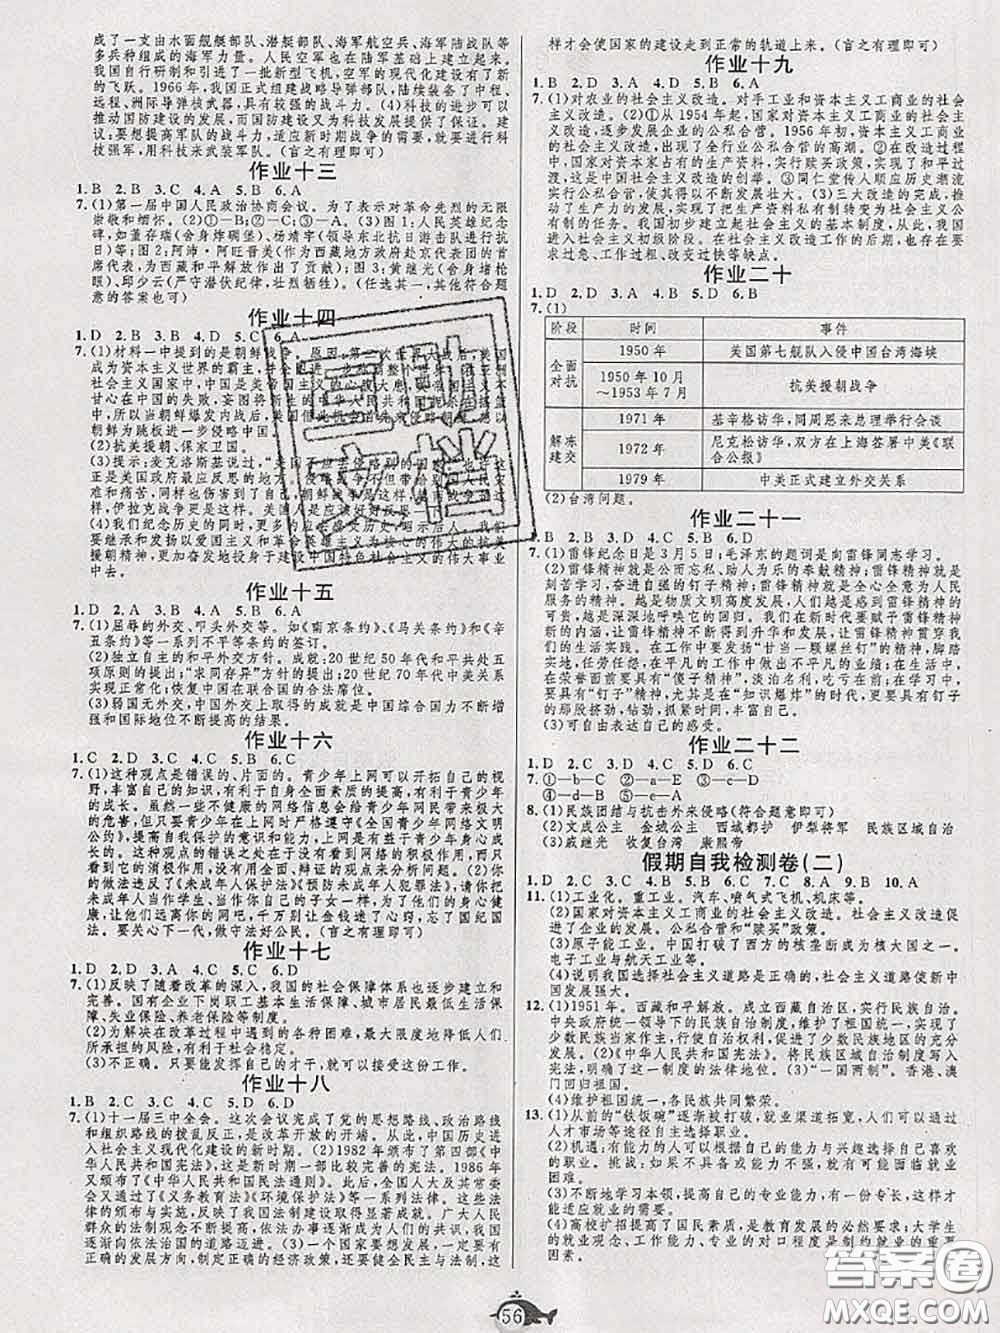 成了一支由水面舰艇部队、潜艇部队、海军航空兵、海军陆战队等
多种兵种组成的海军力量。人民空军也在陆军基础上建立起来。
我国自行研制和引进了一批新型飞机,空军的现代化建设有了新
的飞跃。1966年,我国正式组建战略导弹部队,陆续装备了中程、
远程、洲际导弹核武器,具有较强的战斗力。(4)科技的进步可以
推动国防建设的发展,而国防建设又为科技发展提供了保证。建
议:要想提高军队的战斗力,适应新时期战争的需要,就要进行科
技强军,用科技来武装军队。(言之有理即可)
作业十三
1.B 2.B 3.C 4.A 5.B 6.A
7.(1)第一届中国人民政治协商会议。为了表示对革命先烈的无限
崇敬和缅怀。(2)①—B;②—C;③—A。(3)图1:人民英雄纪念
碑,如董存瑞(舍身炸碉堡)、杨靖宇(领导东北抗日游击队进行抗
日)等;图2:阿沛·阿旺晋美(作为西藏地方政府赴京代表团的首
席代表,为西藏和平解放作出了贡献);图3:黄继光(舍身堵枪
眼)、邱少云(严守潜伏纪律,壮烈牺牲)。(任选其一,其他符合题
意的答案也可)
作业十四
1.D 2.D 3.B 4.D 5.C 6.A
7.(1)材料一中提到的是朝鲜战争。原因:第二次世界大战后,美国
成为资本主义世界的霸主,
社会主义国家中,中国是美
甘心在中国的失败,妄图将新
土,当朝鲜爆发内战后,美国
朝鲜为跳板进一步侵略中国。
(2)抗美援朝、保家卫国。
(3)提示:麦克洛斯基说过,“美国
正是美国政府最应反思的地方,
难和痛苦,同样也伤害到了自己,朝鲜战争是这样,
伊拉克战争更是这样。美国人是应该好好反思
(4)我们纪念历史的同时,更多
要继承和发扬以爱国主义和革命英雄主义为核心的伟大的抗美
援朝精神,更加奋发地投身于建设中国特色社会主义的伟大事业
中去。
作业十五
1.D 2.A 3.B 4.D 5.B 6.A
7.(1)屈辱的外交、叩头外交等。如《南京条约》、《马关条约》和《辛
丑条约》等一系列不平等条约的签订。
(2)独立自主的和平外交方针。成就:20世纪50年代和平共处五
项原则的提出;“求同存异”方针的提出;20世纪70年代中美关系
实现正常化;恢复中国在联合国的合法席位。
(3)弱国无外交,中国外交上取得的成就是中国综合国力不断增
强和国际地位不断提高的结果。
作业十六
1.C 2.C 3.D 4.B 5.B 6.C
7.(1)这种观点是错误的、片面的。青少年上网可以开拓自己的视
野,丰富自己的知识,有利于自身全面素质的提高,有利于青少年
的成长。虽然一些不健康的网络信息会给青少年网民带来极大
的危害,但只要青少年在上网时严格遵守《全国青少年网络文明
公约》,提高自我保护的意识和能力,上网是有益而无害的。这种
观点只看到网络的消极作用,没有看到网络的积极作用,而用它
的消极作用,没有用全面、辩证的观点来分析问题。(2)叔叔,您
的做法违反了《未成年人保护法》《预防未成年人犯罪法》,请你们
把未成年人当作学生、当作你自己的子女一样,为了学生的身心健
康,让他们远离你的网吧,千万别让金钱诱惑你的心,忘了国纪国
法。要关心下一代,做守法好公民。(言之有理即可)
作业十七
1.D 2.D 3.A 4.D 5.C 6.D
7.(1)反映了随着改革的深入,我国的社会保障体系也逐步建立和
完善。国有企业下岗职工基本生活保障、城市居民最低生活保
障、失业保险、养老保险等制度。
(2)为解决在改革过程中遇到的各种困难,最大限度地降低人们
所承担的风险,有利于社会稳定。
(3)不正确。只要能发挥自己的才干,就可以接受这份工作。
作业十八
1.B 2.C 3.D 4.A 5.C 6.D
7.(1)十一届三中全会。这次会议完成了党的思想路线、政治路线
和组织路线的拨乱反正,是改革开放的开端。从此,中国历史进
入社会主义现代化建设的新时期。(2)1982年颁布了第四部《中
华人民共和国宪法》,这是新时期一部比较完善的宪法。1986年
又颁布了《中华人民共和国民法通则》。此后,全国人大及其常委
会又通过了《义务教育法》《环境保护法》等一系列法律。这些法
律的颁布与实施,反映了我国法制建设取得显著成就。广大人民
群众的法制观念不断提高,依法办事逐渐成为人们的共识,我国
依法治国的道路迈进。(3)一个国家要想发展,一定要有正
确的发展方向,制定正确的经济政策,还要健全民主与法制,这
样才会使国家的建设走到正常的轨道上来。(言之有理即可)
作业十九
1.B 2.D 3.A 4.D 5.B 6.A
7.(1)对农业的社会主义改造。对手工业和资本主义工商业的社会
主义改造。(2)①从1954年起,国家对资本主义工商业的社会主
义改造,逐步发展企业的公私合营。1956年初,资本主义工商业
的社会主义改造,出现了全行业公私合营的高潮。②在改造过程
中,国家对资本家占有的生产资料,实行赎买政策,实现了和平过
渡,这是中国社会主义改造的创举。③同仁堂传人顺应历史潮流
实行公私合营,使其得以不断发展壮大。(3)三大改造的完成,推
动了生产力的发展,实现了把生产资料私有制转变为社会主义公
有制的任务。我国初步建立起社会主义的基本制度,从此,我国
进入社会主义初级阶段。在社会主义改造工作的后期,也存在要
求过急、工作过粗、改变过快等缺点。
作业二十
1.D 2.B 3.A 4.D 5.D 6.B
7.(1)
阶段 时间 事件
全面对抗 1950年 美国第七舰队入侵中国台湾海峡
1950年10月～1953年7月 抗美援朝战争
解冻建交 1971年 基辛格访华,同周恩来总理举行会谈
1972年 尼克松访华,双方在上海签署中美《联合公报》
1979年 中美正式建立外交关系
(2)台湾问题。
作业二十一
1.B 2.D 3.A 4.C 5.C 6.D
7.(1)雷锋纪念日是3月5日;毛泽东的题词是向雷锋同志学习。
(2)雷锋精神就是公而忘私、助人为乐的奉献精神;雷锋精神就是
刻苦学习、奋发图强的钉子精神;雷锋精神就是全心全意为人民
服务的精神。越是物质文明高度发展,人们对雷锋精神的可贵的
精神就是深深地呼唤它的回归。我们在新时代要赋予雷锋精神
新的内涵,让雷锋精神不断得到升华和发展,让雷锋精神贯穿我
们的生活实践。在工作中要发扬“甘当一颗螺丝钉”的精神,脚踏
实地、任劳任怨,在平凡的工作中做出不平凡的业绩;在生活中,
在荣誉面前要具有“傻子精神”,淡泊名利,吃亏在前,享受在后;
要具有“钉子”精神,尤其是在“知识爆炸”的时代,更要具有钉子
的那股挤劲、钻劲,抓紧时间,丰富自己。
(3)可自由表达自己的感受。
作业二十二
1.D 2.B 3.C 4.D 5.A 6.C
7.①—b—C ②—a—E ③—c—D
④—d—B ⑤—e—A
8.(1)民族团结与抗击外来侵略(符合题意即可)
(2)文成公主 金城公主 西域都护 伊犁将军 民族区域自治
(3)戚继光 收复台湾 康熙帝
假期自我检测卷(二)
1.D 2.C 3.C 4.D 5.B 6.D 7.C 8.A 9.B 10.A
11.(1)工业化。重工业。汽车、喷气式飞机、机床等。
(2)国家对资本主义工商业的社会主义改造。社会主义改造促
进了企业的发展。公私合营和“赎买”政策。
(3)原子能工业。中国打破了西方的核垄断成为核大国之一。
电子工业与航天工业等。
(4)说明我国选择社会主义道路是正确的,社会主义道路使新中
国发展强大。
12.(1)1951年。西藏和平解放。成立西藏自治区,实行民族自治。
中央政府统一领导下的民族自治制度,维护了祖国统一,实现了
少数民族当家作主,有利于各民族共同发展,促进了少数民族的充分
发展。(2)《中华人民共和国宪法》。将民族区域自治制度写入
宪法,明确了这一制度的法律地位。(3)“一国两制”。香港、澳
门回归祖国。
(4)维护祖国统一,各民族共同繁荣。
13.(1)从前的“铁饭碗”逐渐被打破,就业渠道拓宽,人们可以通过
人才市场等途径自主选择职业。
(2)机遇:有能力的人可以根据自己的能力与兴趣选择自己喜欢
的职业。挑战:如果不具备或能力不强,就有可能面临就业
困难。
(3)不断地学习本领,提高自己的专业能力,有一份专长,这样才
能适应就业的需要。
(4)高校扩招提高了国民素质,是教育发展的必然要求;大学生
的就业观念、工作能力、专业的对口程度是制约就业的重要
因素。
56
答案圈
MXQE.COM